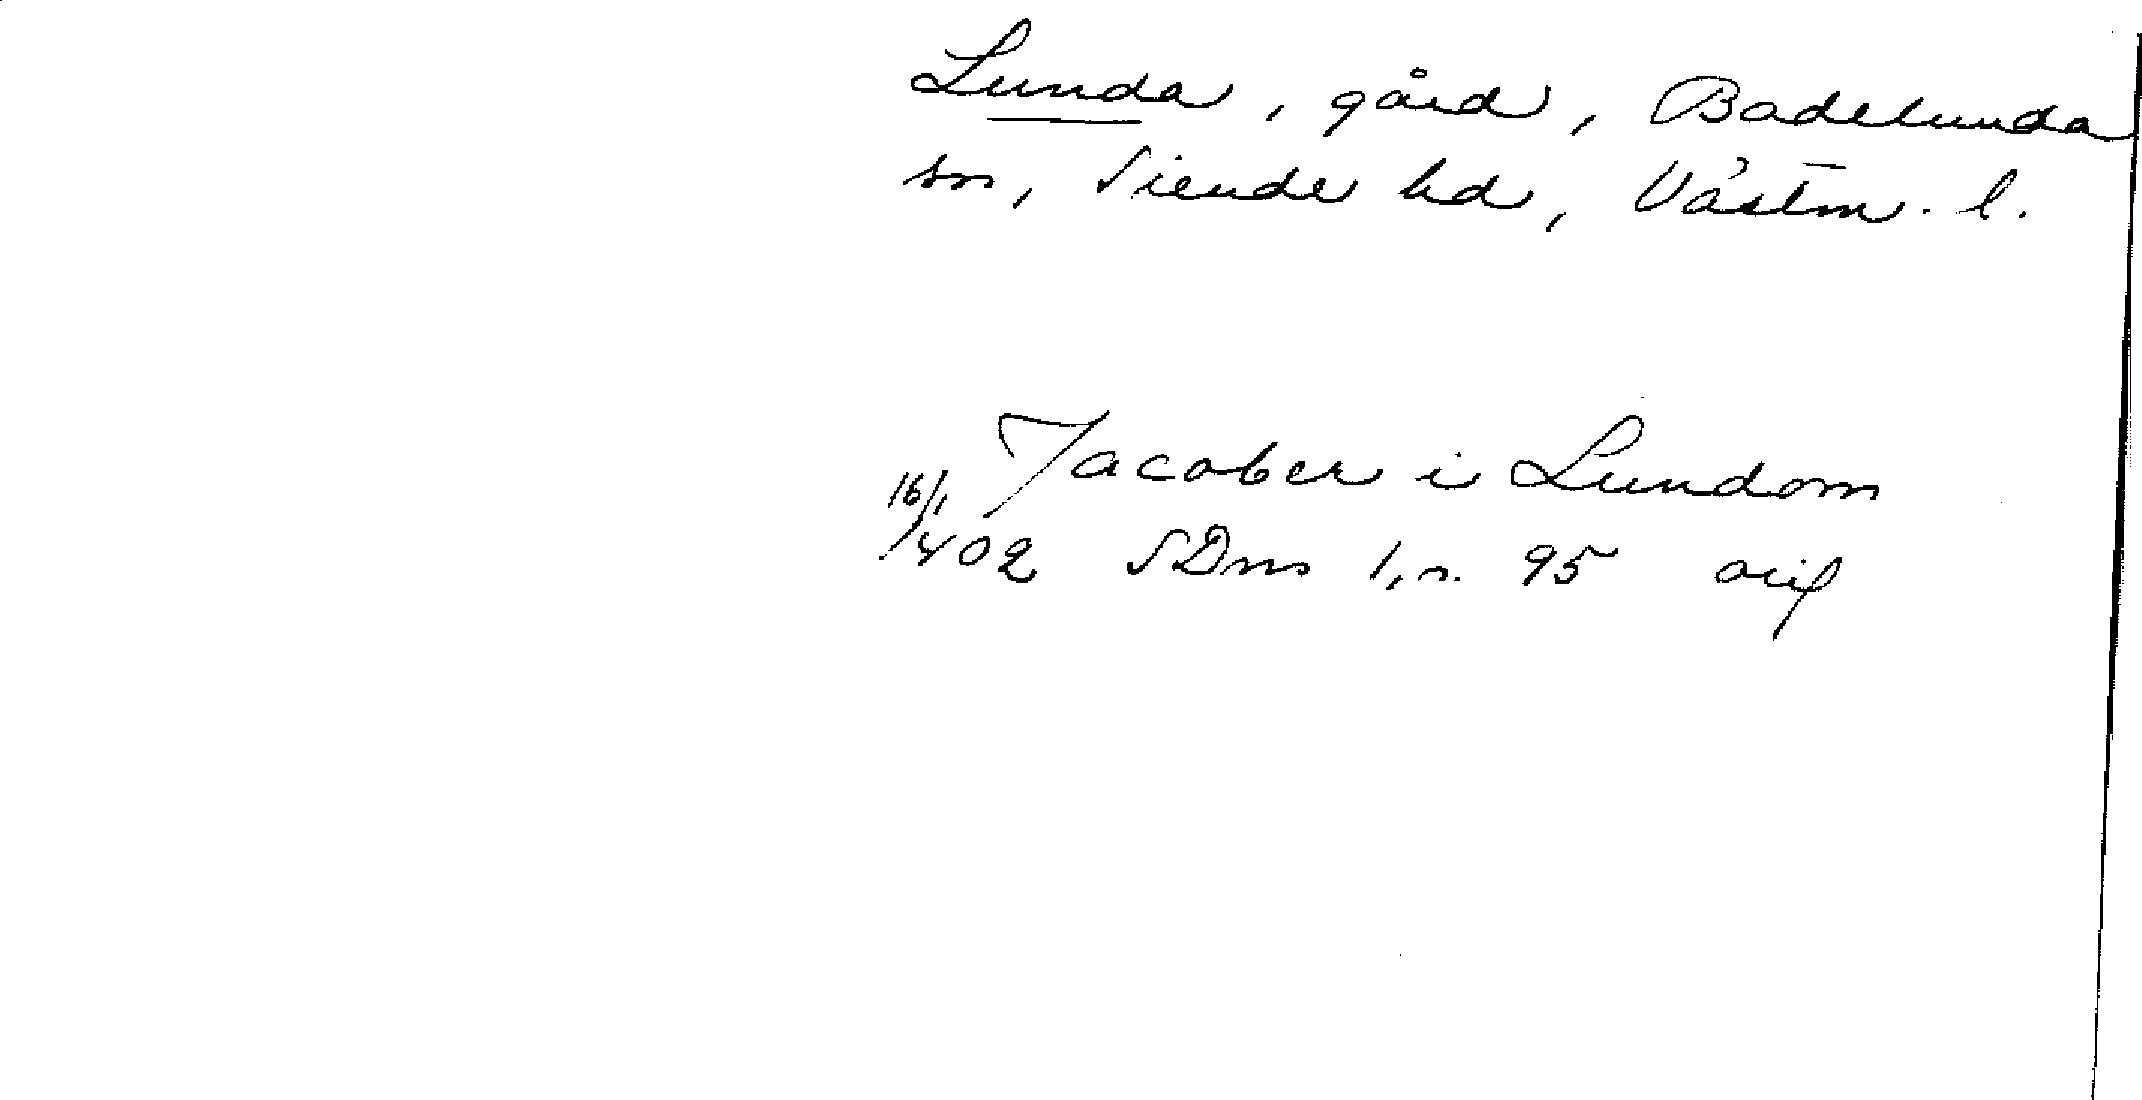 Lunda, gård, Badelunda
sn, Siende hd, Västm. l.
Jacober i Lundom
16/1 1402 SDns 1, s. 95 orig